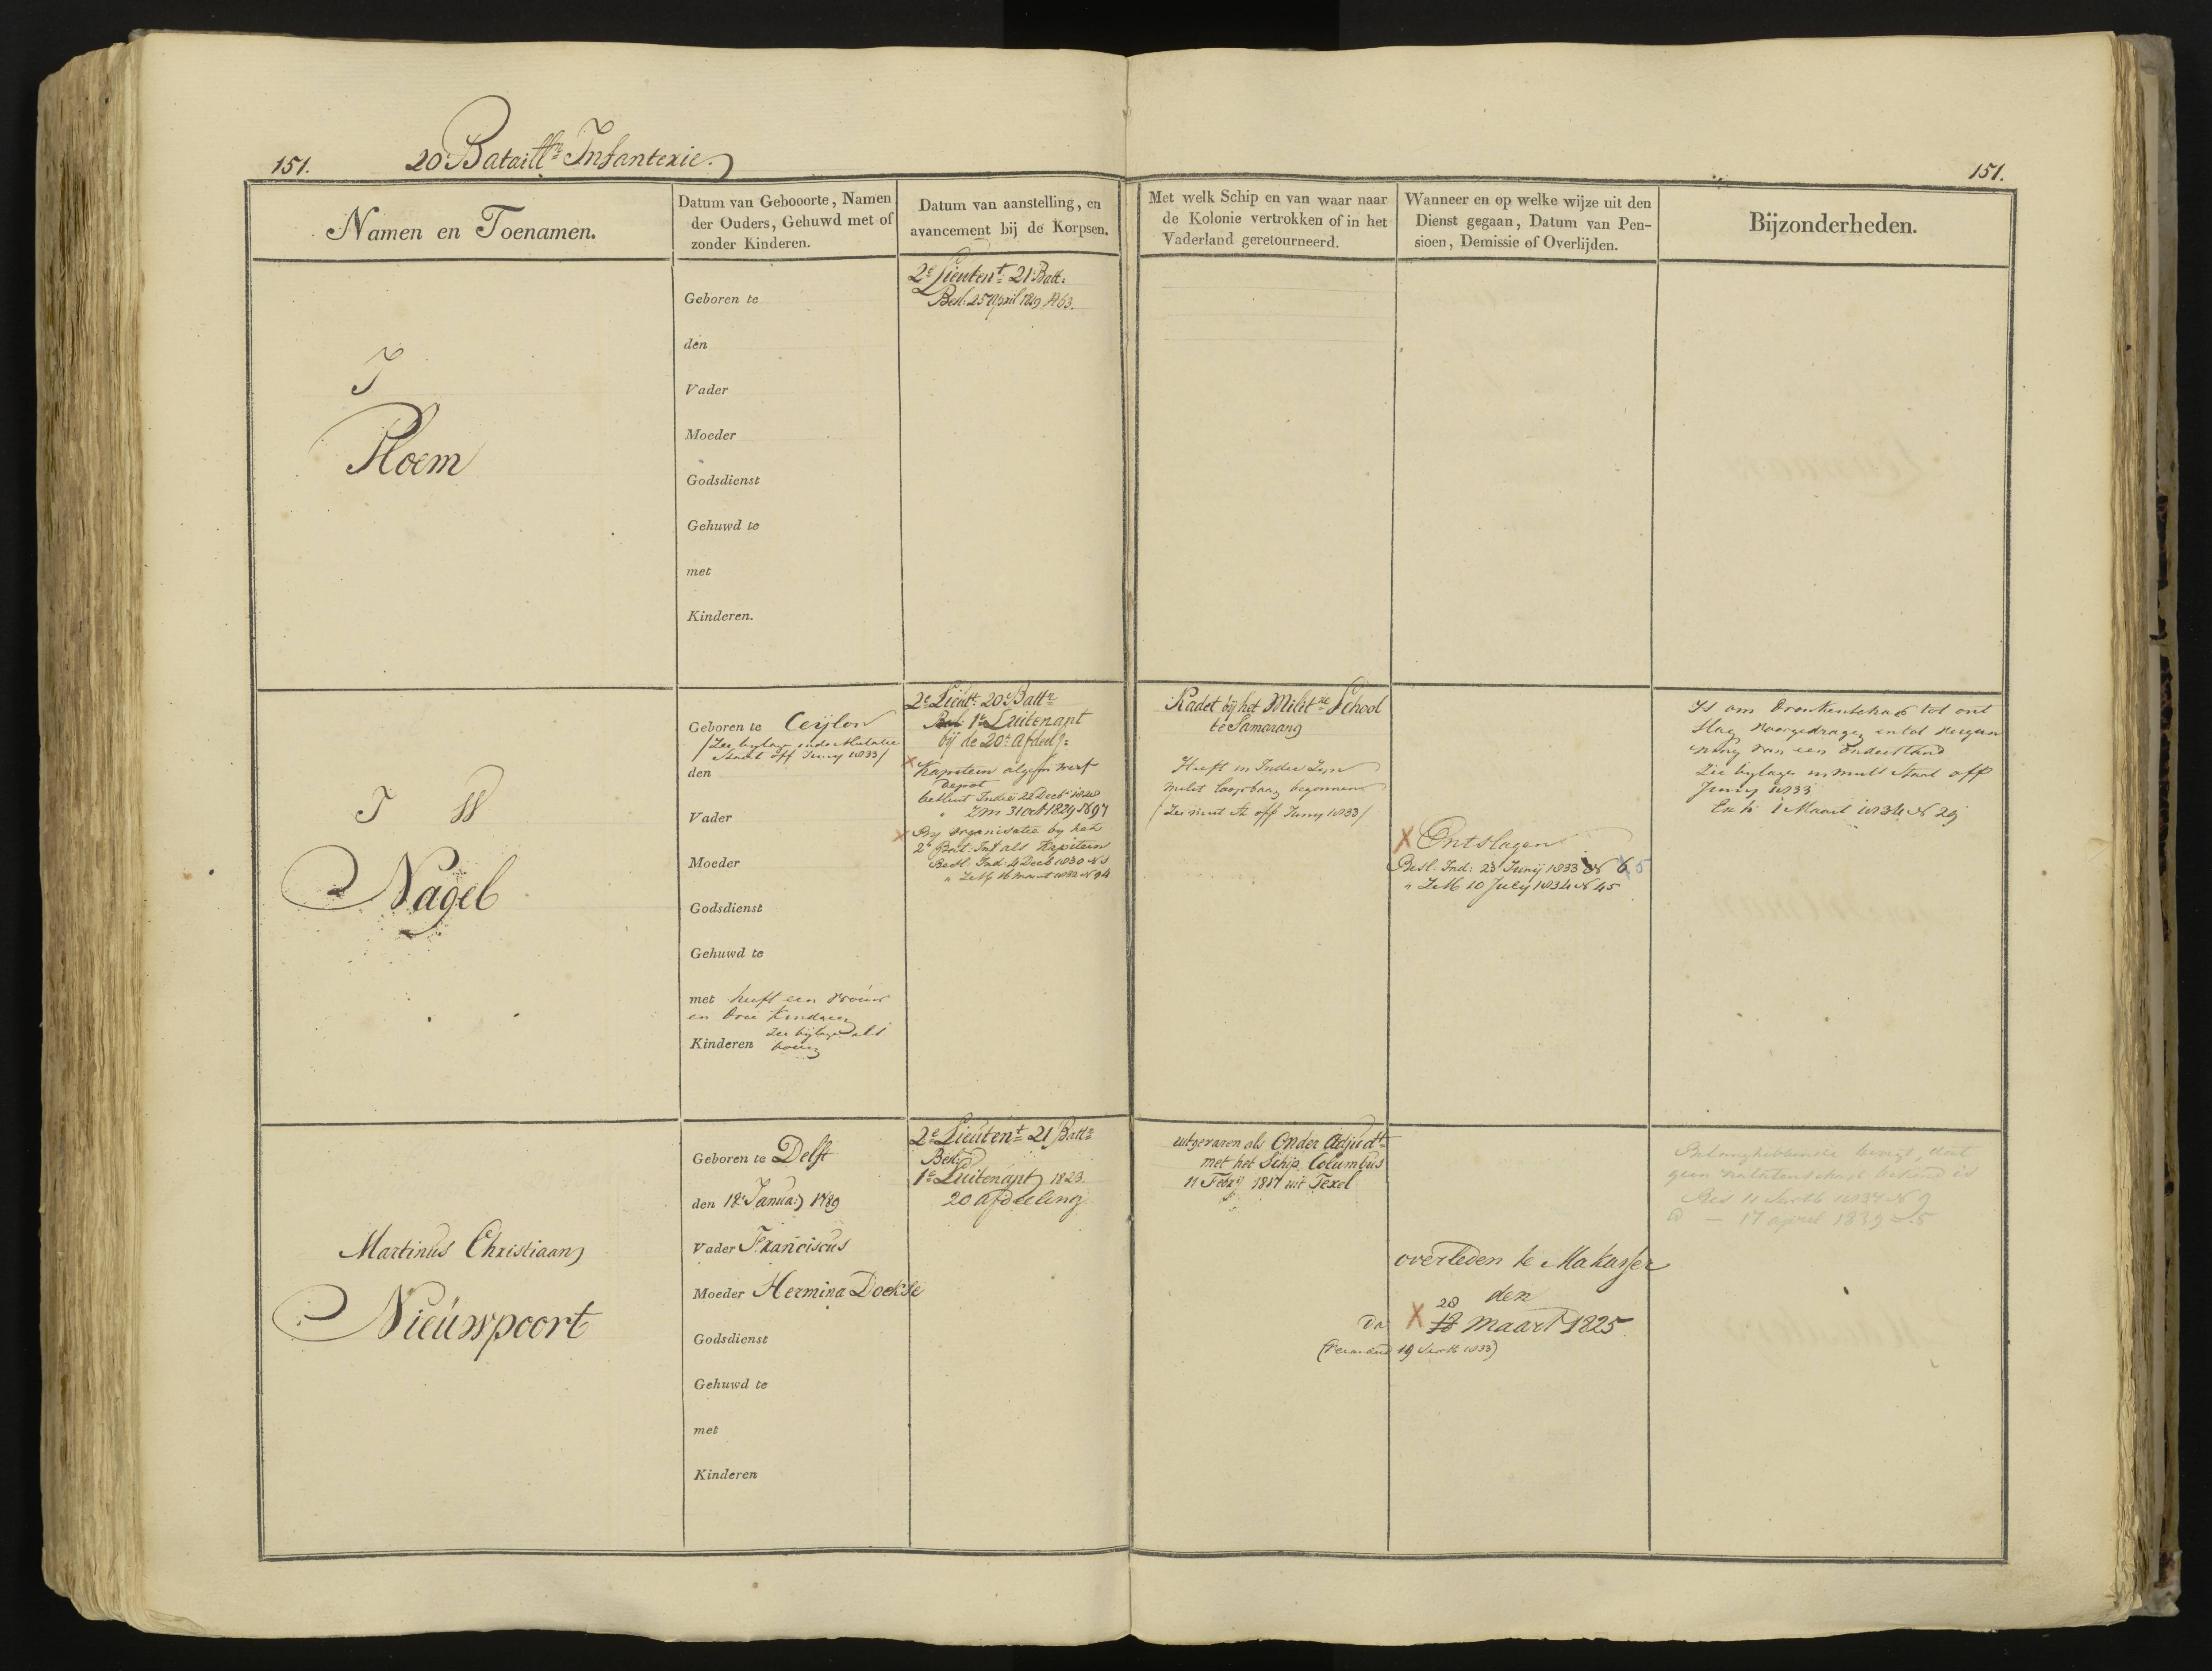 151.
20: Bataill:n Infanterie.
151.
Namen en Toenamen.
Datum van Gebooorte, Namen
der Ouders, Gehuwd met of
zonder Kinderen.
Datum van aanstelling, en
avancement bij de Korpsen.
Met welk Schip en van waar naar
de Kolonie vertrokken of in het
Vaderland geretourneerd.
Wanneer en op welke wijze uit den
Dienst gegaan, Datum van Pen-
sioen, Demissie of Overlijden.
Bijzonderheden.
J
Ploem
Geboren te
den
Vader
Moeder
Godsdienst
Gehuwd te
met
Kinderen.
2e Lieutent 21: Batt:
Besl: 25 April 1819 N 63.
J W
Nagel
Geboren te Ceijlon
/Zie bylage onder Mutatie
Staat off Juny 1833/
den
Vader
Moeder
Godsdienst
Gehuwd te
met heeft een vrouw
en drie kinderen
Zie bijlage als
Kinderen boven
2e Lieutt 20e Battn
Besl: 1e Luitenant
bij de 20e Afdeelg:
X Kapitein algem werf
depot
besluit Indie 22 Decb 1828
" ZM 31 Oct 1829 N 97
X By organisatie by het
2e Bat: Inf als Kapitein
Besl: Ind 4 Decb 1830 N 1
" ZM 16 maart 1832 N 94
Kadet bij het Militre School
te Samarang
Heeft in Indie Zyn
milit loopbaan begonnen
/Zie mut St off Juny 1833/
X Ontslagen
Besl: Ind: 23 Junij 1833 N 5
" ZM 10 July 1834 N 45
Is om dronkenschap tot ont
slag voorgedragen en tot vergun
ning van een onderstand
Zie bylage in mutt Staat off
Juny 1833
1 Maart 1834 N 29
Martinus Christiaan
Nieuwpoort
Geboren te Delft
den 18e Januar) 1789
Vader Franciscus
Moeder Hermina Doekse
Godsdienst
Gehuwd te
met
Kinderen
2e Lieutent 21 Battn
Besl:
1e Luitenant 1823.
20 afdeeling
uitgevaren als Onder Adjudt
met het Schip Columbus
11 Feby 1817 uit Texel
overleden te Makasser
den
28
X 18 maart 1825
1833)
geen nalatenschap bekend is
17 april 1839 N 5